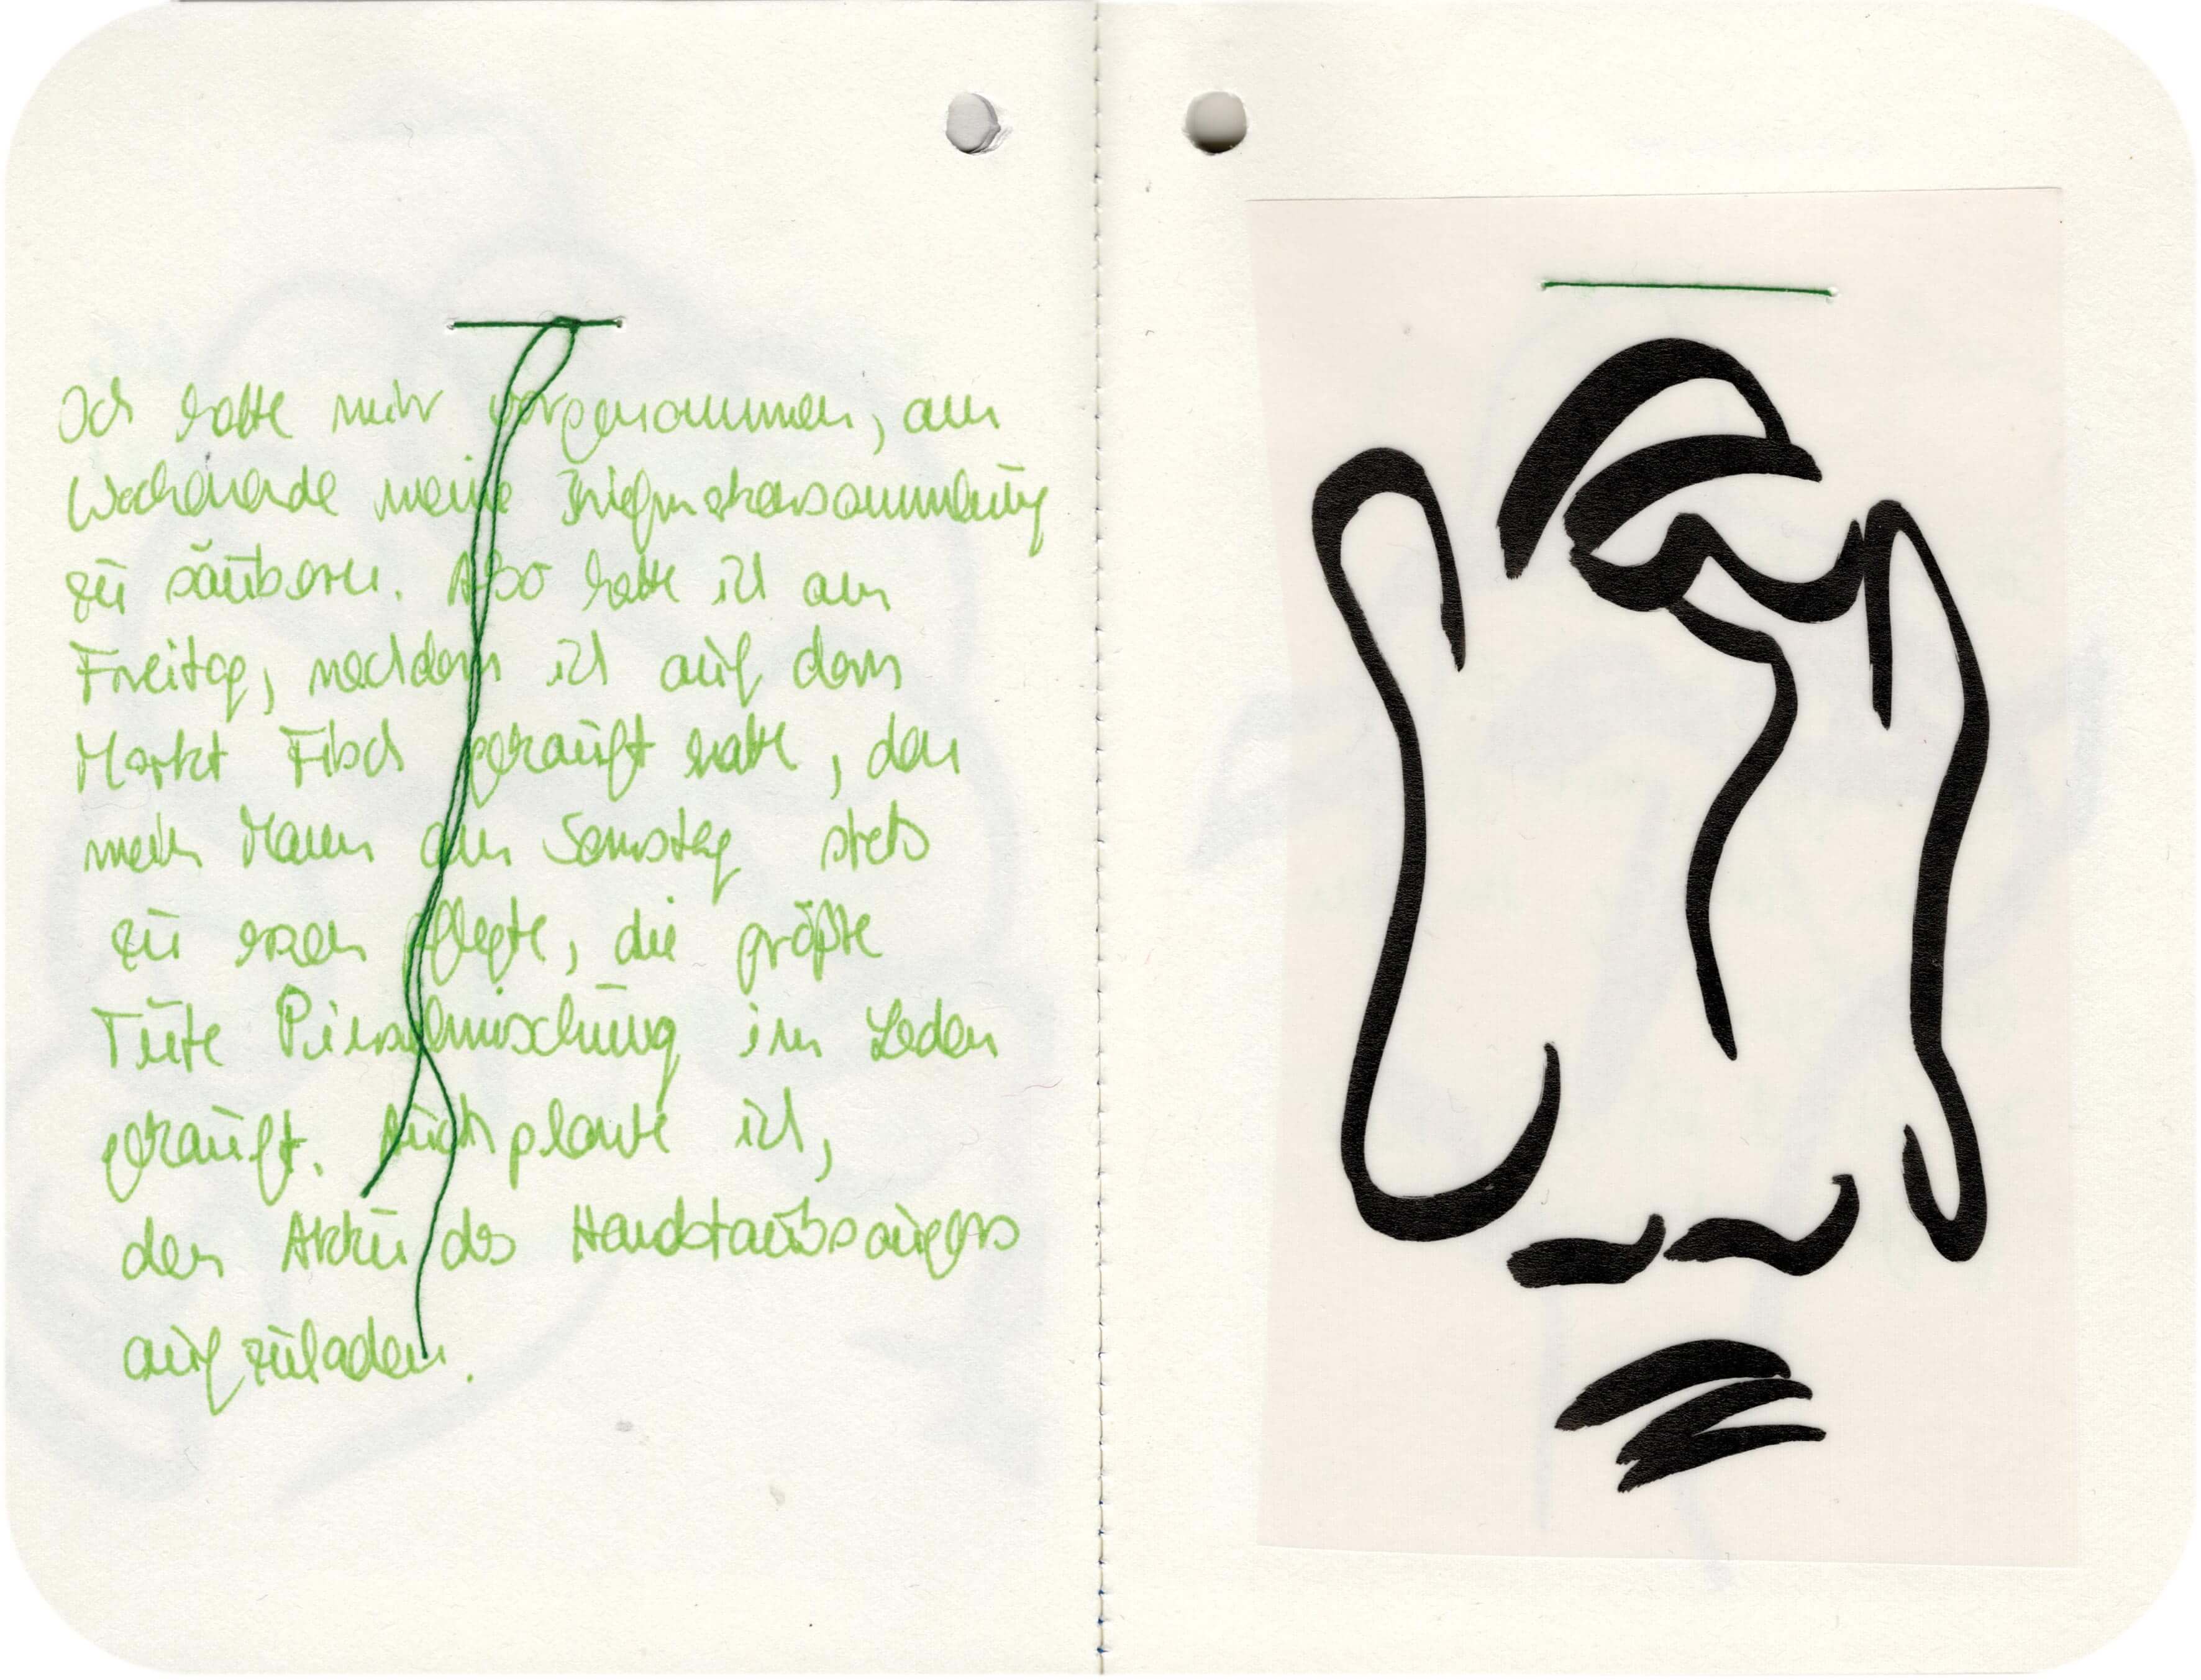 Ich hatte mir vorgenommen, am
Wochenende meine Briefmarkensammlung
zu säubern. Also hatte ich am
Freitag, nachdem ich auf dem
Markt Fisch gekauft hatte, den
mein Mann am Samstag stets
zu essen pflegte, die größte
Tüte Pinselmischung im Laden
gekauft. Auch plante ich,
den Akku des Handstaubsaugers
aufzuladen.